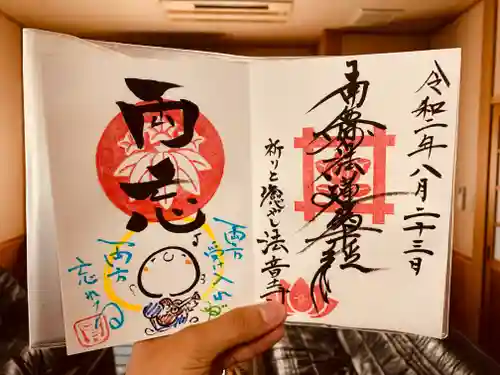 令和二年八月二十三日
南無妙法蓮華経
祈りと癒やし法音寺
両忘
両方
受け入れば
両方
忘れる